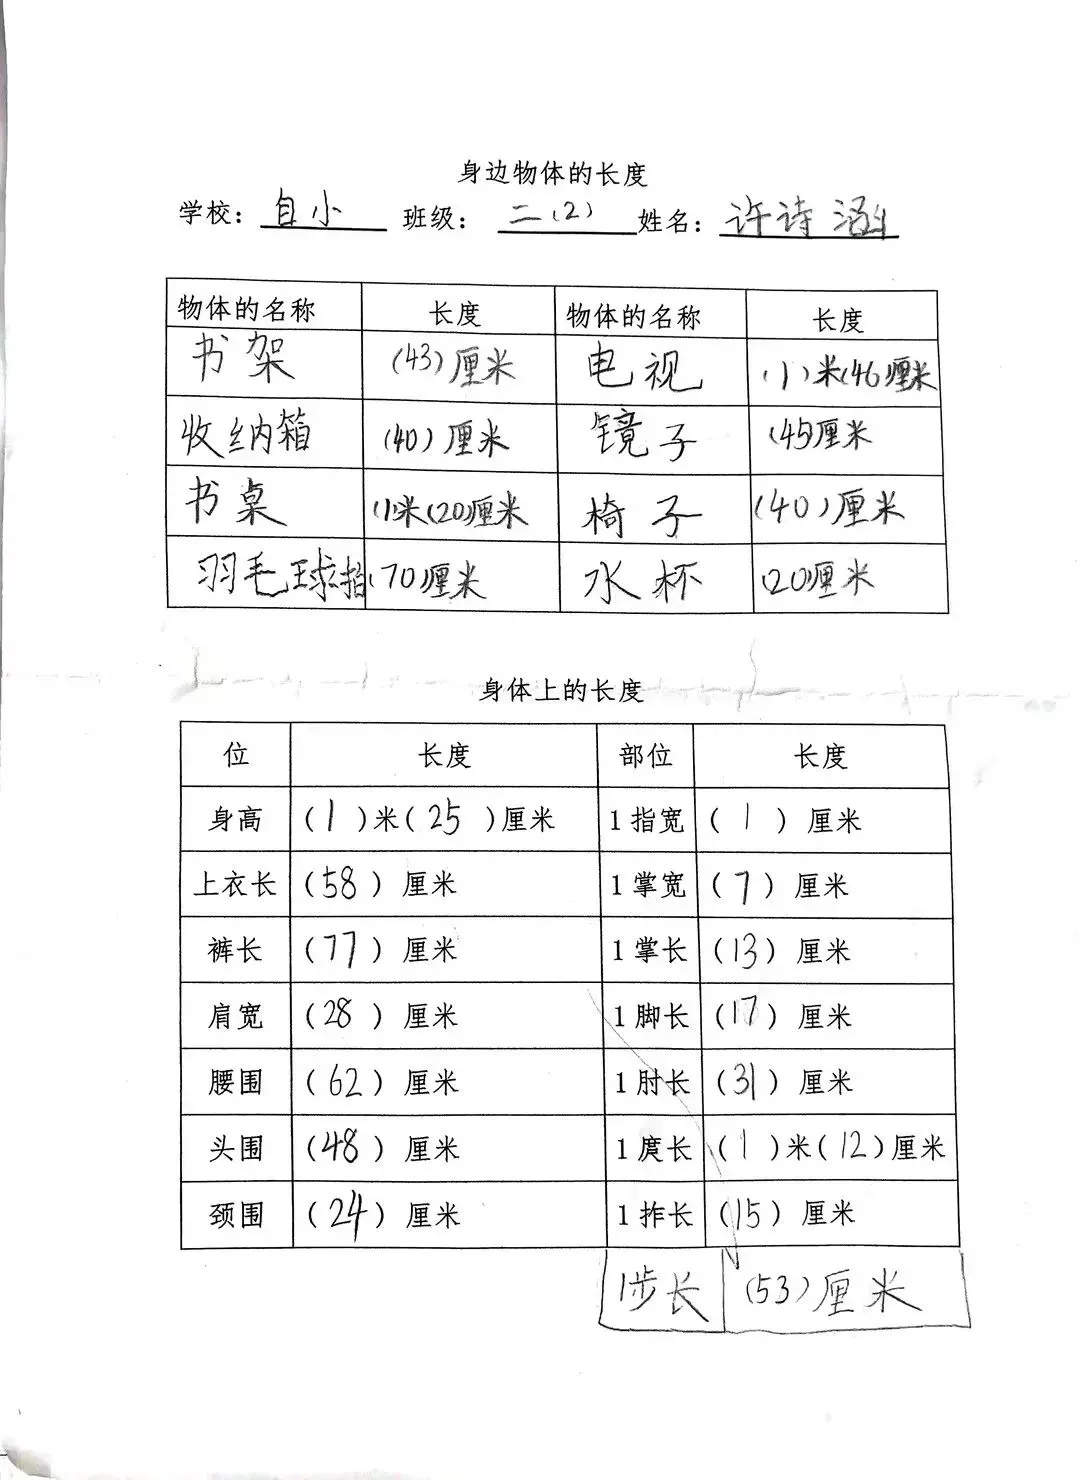 身边物体的长度
学校：自小 班级：二（2） 姓名：许诗涵
物体的名称 长度 物体的名称 长度
书架 （43）厘米 电视 （1）米（46）厘米
收纳箱 （40）厘米 镜子 （45）厘米
书桌 （1）米（20）厘米 椅子 （40）厘米
羽毛球拍 （70）厘米 水杯 （20）厘米
身体上的长度
位 长度 部位 长度
身高 （1）米（25）厘米 1指宽 （1）厘米
上衣长 （58）厘米 1掌宽 （7）厘米
裤长 （77）厘米 1掌长 （13）厘米
肩宽 （28）厘米 1脚长 （17）厘米
腰围 （62）厘米 1肘长 （31）厘米
头围 （48）厘米 1庹长 （1）米（12）厘米
颈围 （24）厘米 1拃长 （15）厘米
1步长 （53）厘米